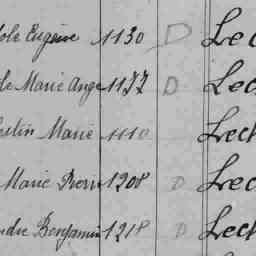 Eugène 1130 D Lec
Marie Ange 1177 D Lec
Marie 1110 Lec
Marie Pierr 1208 D Lec
Benjamin 1218 D Lec